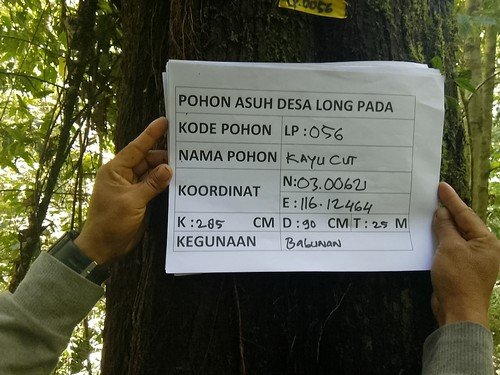 POHON ASUH DESA LONG PADA
KODE POHON LP : 056
NAMA POHON KAYU CUT
KOORDINAT N: 03.00621
E : 116.12464
K : 285 CM D : 90 CM T : 25 M
KEGUNAAN BAGUNAN